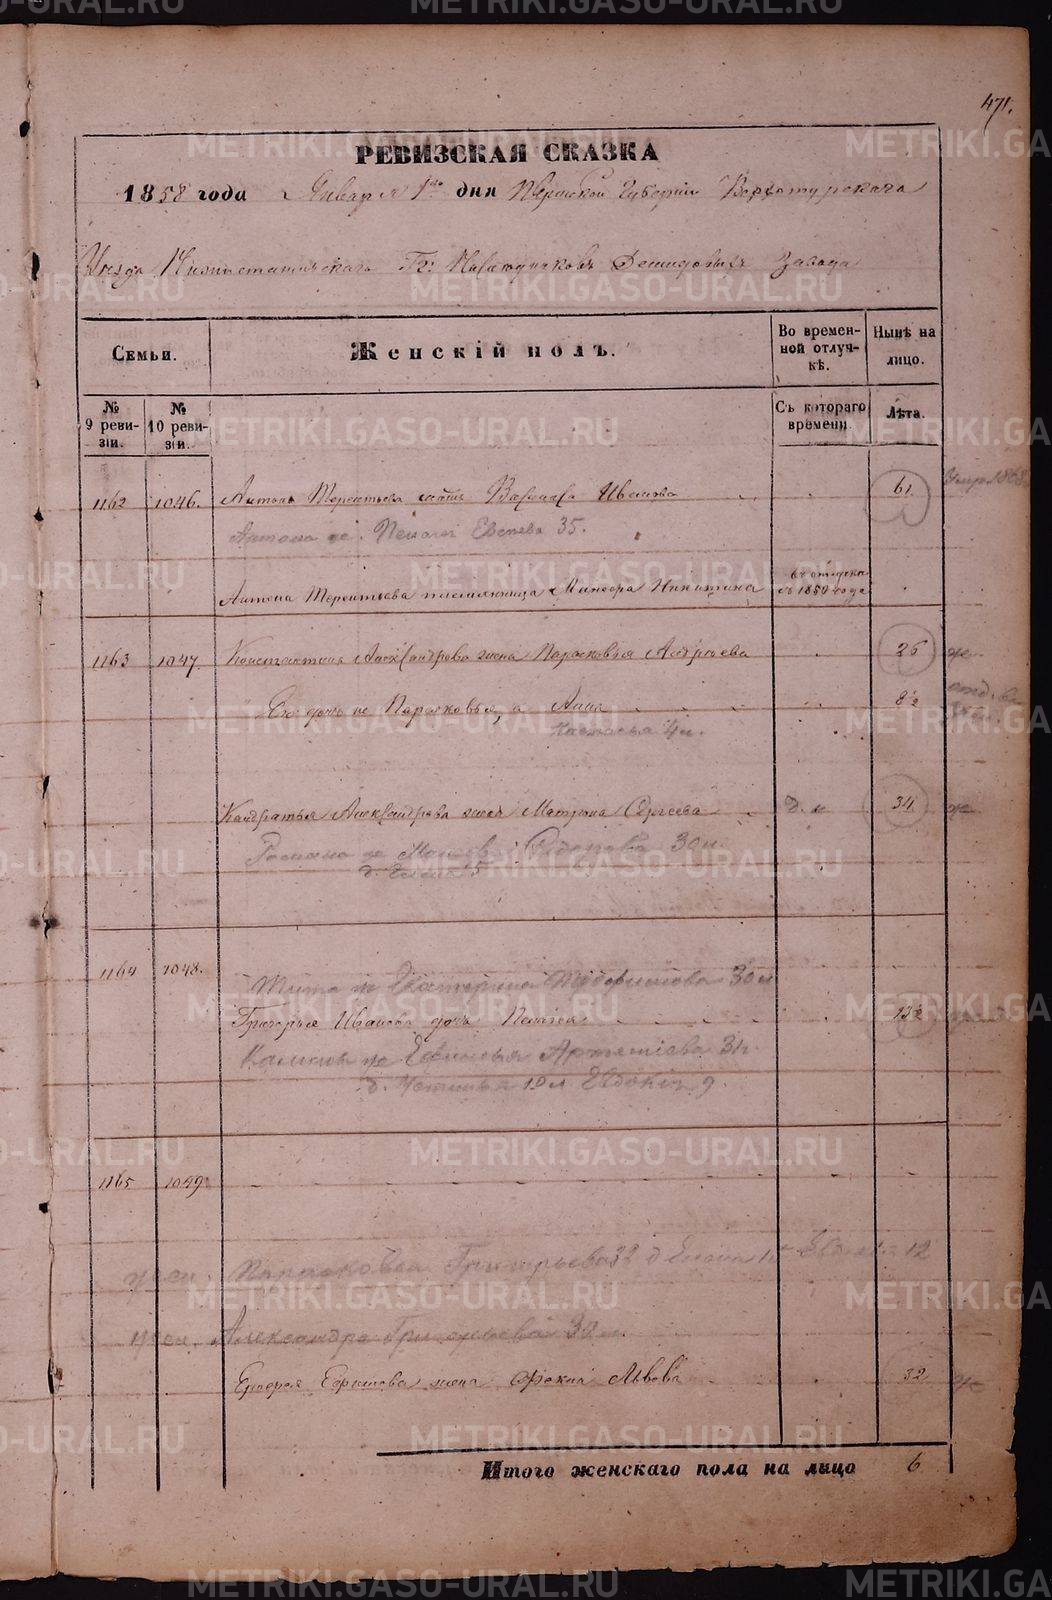 METRIKI.GASO-URAL.RU
471.
РЕВИЗСКАЯ СКАЗКА
1858 года Января 1го дня Пермской Губернии Верхотурскаго
Уезда Нижнетагильскаго Гг. Наследников Демидовых Завода
Семьи.
Женскій полъ.
Во времен-
ной отлуч-
кѣ.
Нынѣ на
лицо.
№
9 реви-
зіи.
№
10 реви-
зіи.
Съ котораго
времени.
Лѣта.
1162 1046. Антона Терентьева мать Варвара Иванова 61. Умер. 1868
Антона ж. Пелагея 35.
Антона Терентьева племянница Минодора Никитина в отлучке с 1850 года
1163 1047. Константина Александрова жена Парасковья Андреева 26 ж
Его дочь не Парасковья, а Анна 8½
Настасья 4 л.
Кондратья Александрова жена Матрена Сергеева 34 ж
Сидорова 30 л.
1164 1048.
Тита ж Екатерина 30 л
Григорья Иванова дочь Пелагея 13½
Калины ж Ефимья Артемiева 31.
д. Устинья 10 л Евдокія 9
1165 1049
Парасковья Григорьева 32 д 12
Александра Григорьева 30 л.
Егора Ефимова жена Фекла Львова 32 ж
Итого женскаго пола на лицо 6